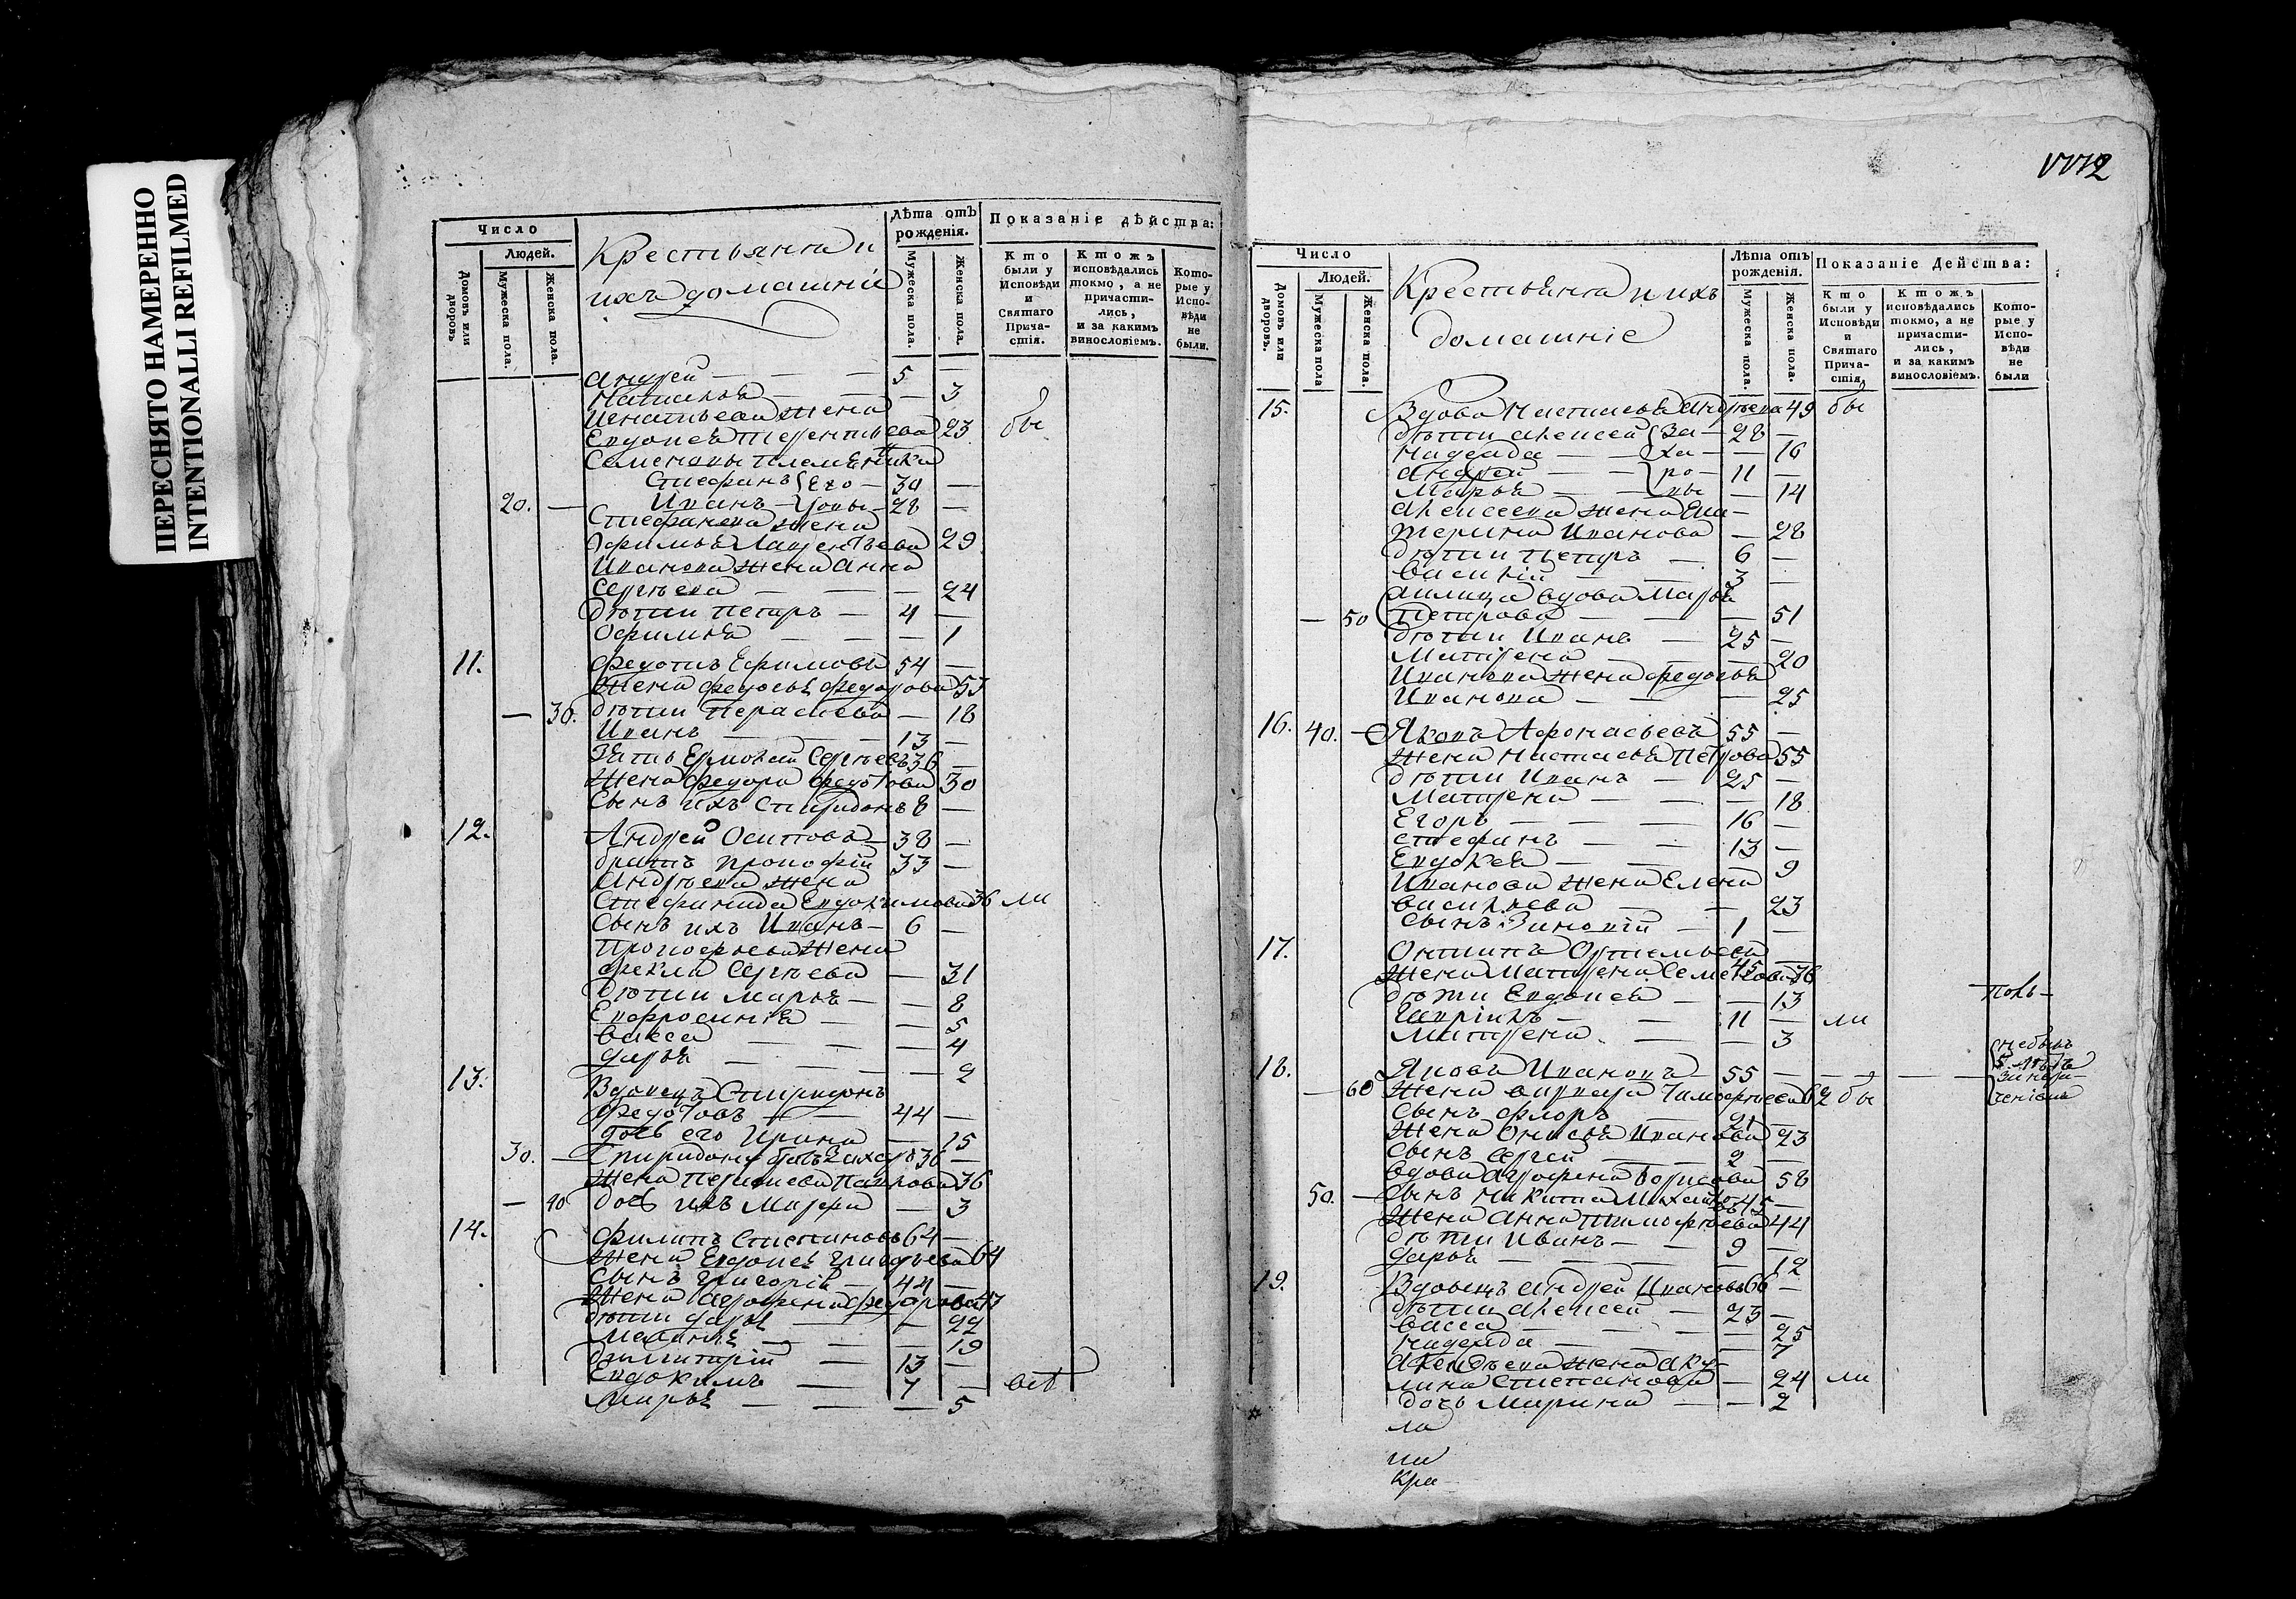 ПЕРЕСНЯТО НАМЕРЕННО
INTENTIONALLI REFILMED
Число
Людей.
Домовъ или дворовъ.
Мужеска пола.
Женска пола.
Крестьяне и
ихъ домашніи
Лѣта отъ рожденія.
Мужеска пола.
Женска пола.
Показаніе дѣйства:
Кто были у Исповѣди и Святаго Причастія.
Ктожъ исповѣдались токмо, а не причастились, и за какимъ винословіемъ.
Которые у Исповѣди не были.
Андрей — 5 —
Наталья — — 3
Игнатьева жена
Евдокея Терентьева 23 бы
Семеновы племянники
Стефанъ его — 30 —
20. — Иванъ — 28 —
Стефанова жена
Офимья Лаврентьева 29
Иванова жена Анна
Сергѣева — — 24
дѣти Петръ — 4 —
Офимья — — 1
11. Федотъ Ефимовъ 54 —
жена Федосья Федорова 53
— 30. дѣти Парасковья — 18
Иванъ — 13 —
Зять Ермолай Сергѣевъ 36 —
жена Федора Федотова 30
сынъ ихъ Спиридонъ 8 —
12. Андрей Осиповъ — 38 —
братъ Прокофій 33 —
Андрѣева жена
Стефанида Евдокимова 36 ли
сынъ ихъ Иванъ — 6 —
Прокофьева жена
Фекла Сергѣева — 31
дѣти Марья — — 8
Евфросинія — — 5
Васса — — 4
Дарья — — 2
13. Вдовецъ Спиридонъ
Федотовъ — 44 —
дочь его Ирина — 15
30. — Спиридона 36 —
жена 36
— 40 дочь ихъ Марфа — 3
14. Филипъ Степановъ 64 —
жена Евдокея Григорьева 64
сынъ Григорій — 44 —
жена Агрофена Федорова 47
дѣти Дарья — — 22
Маланья — — 19
Дмитрій — 13 —
Евдокимъ — 7 — всѣ
Марья — — 5
1172
Число
Людей.
Домовъ или дворовъ.
Мужеска пола
Женска пола.
Крестьяне и ихъ
домашніе
Лѣта отъ рожденія.
Мужеска пола.
Женска пола.
Показаніе Действа:
Кто были у Исповѣди и Святаго Причастія,
Ктожъ исповѣдались токмо, а не причастились, и за какимъ винословіемъ.
Которые у Исповѣди не были
15. Вдова Настасья Андрѣева 49 бы
дѣти Алексей За — 28 —
Надежда — ха — — 16
Андрей — ро — 11 —
Марья — вы — 14
Алексеева жена Ека-
терина Иванова — 28
дѣти Петръ — 6 —
Василій — 3 —
вдова Марья
— 50 Петрова — — 51
дѣти Иванъ — 25 —
Матрена — — 20
Иванова жена Федосья
Иванова — — 25
16. 40. — Яковъ Афонасьевъ 55 —
жена Настасья Петрова 55
дѣти Иванъ — 25 —
Матрена — — 18
Егоръ — 16 —
Стефанъ — 13 —
Евдокея — 9
Иванова жена Елена
Васильева — — 23
сынъ Зиновій — 1 —
17. Онтипъ Ортемьевъ 45 —
жена Матрена Семенова 36
дѣти Евдокея — — 13
11 — ли
Матрена — — 3
18. Яковъ Ивановъ — 55 —
— 60 жена Варвара Тимофѣева 62 бы
сынъ Флоръ — 21 —
жена Онисья Иванова 23
сынъ Сергей — 2 —
вдова Агрофена Борисова 58
50. — сынъ Никита Михайловъ 45 —
жена Анна Тимофѣева 44
дѣти Иванъ — 9 —
Дарья — — 12
19. Вдовецъ Андрей Ивановъ 66 —
дѣти Алексей — 23 —
Васса — — 25
Надежда — — 7
Алексѣева жена Аку-
лина Степанова — 24 ли
дочь Марина — — 2
ла
ни
Кра
небылъ
5. лѣтъ